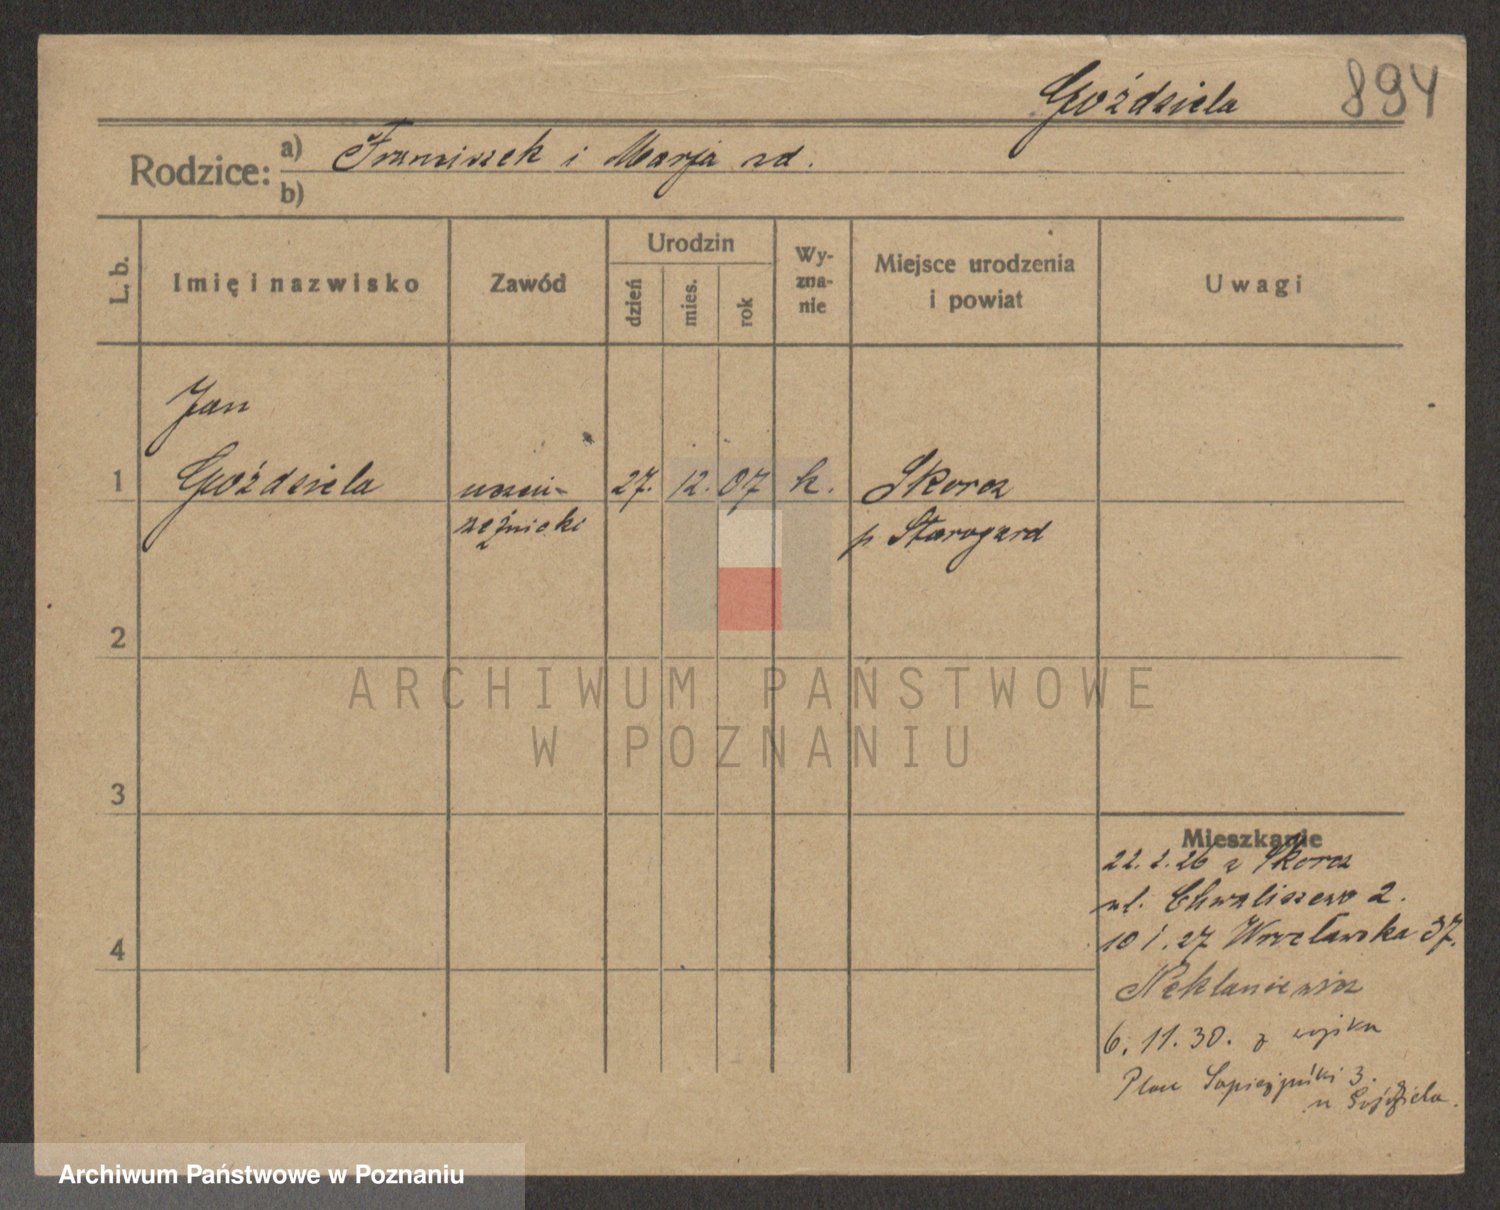 Goździela 894
Rodzice: a) Franciszek i Marja
b)
L. b. Imię i nazwisko Zawód Urodzin dzień mies. rok Wyznanie Miejsce urodzenia i powiat Uwagi
Jan
1 Goździela uczeń 27. 12. 07 k. Skorcz
rzeźnicki p Starogard
2
ARCHIWUM PAŃSTWOWE
W POZNANIU
3
Mieszkanie
22. 2. 26 z Skorcz
ul. Chwaliszewo 2.
4
10 1. 27 Wrocławska 37.
6. 11. 30. z wojska
Plac Sapieżyński 3.
u Goździela.
Archiwum Państwowe w Poznaniu